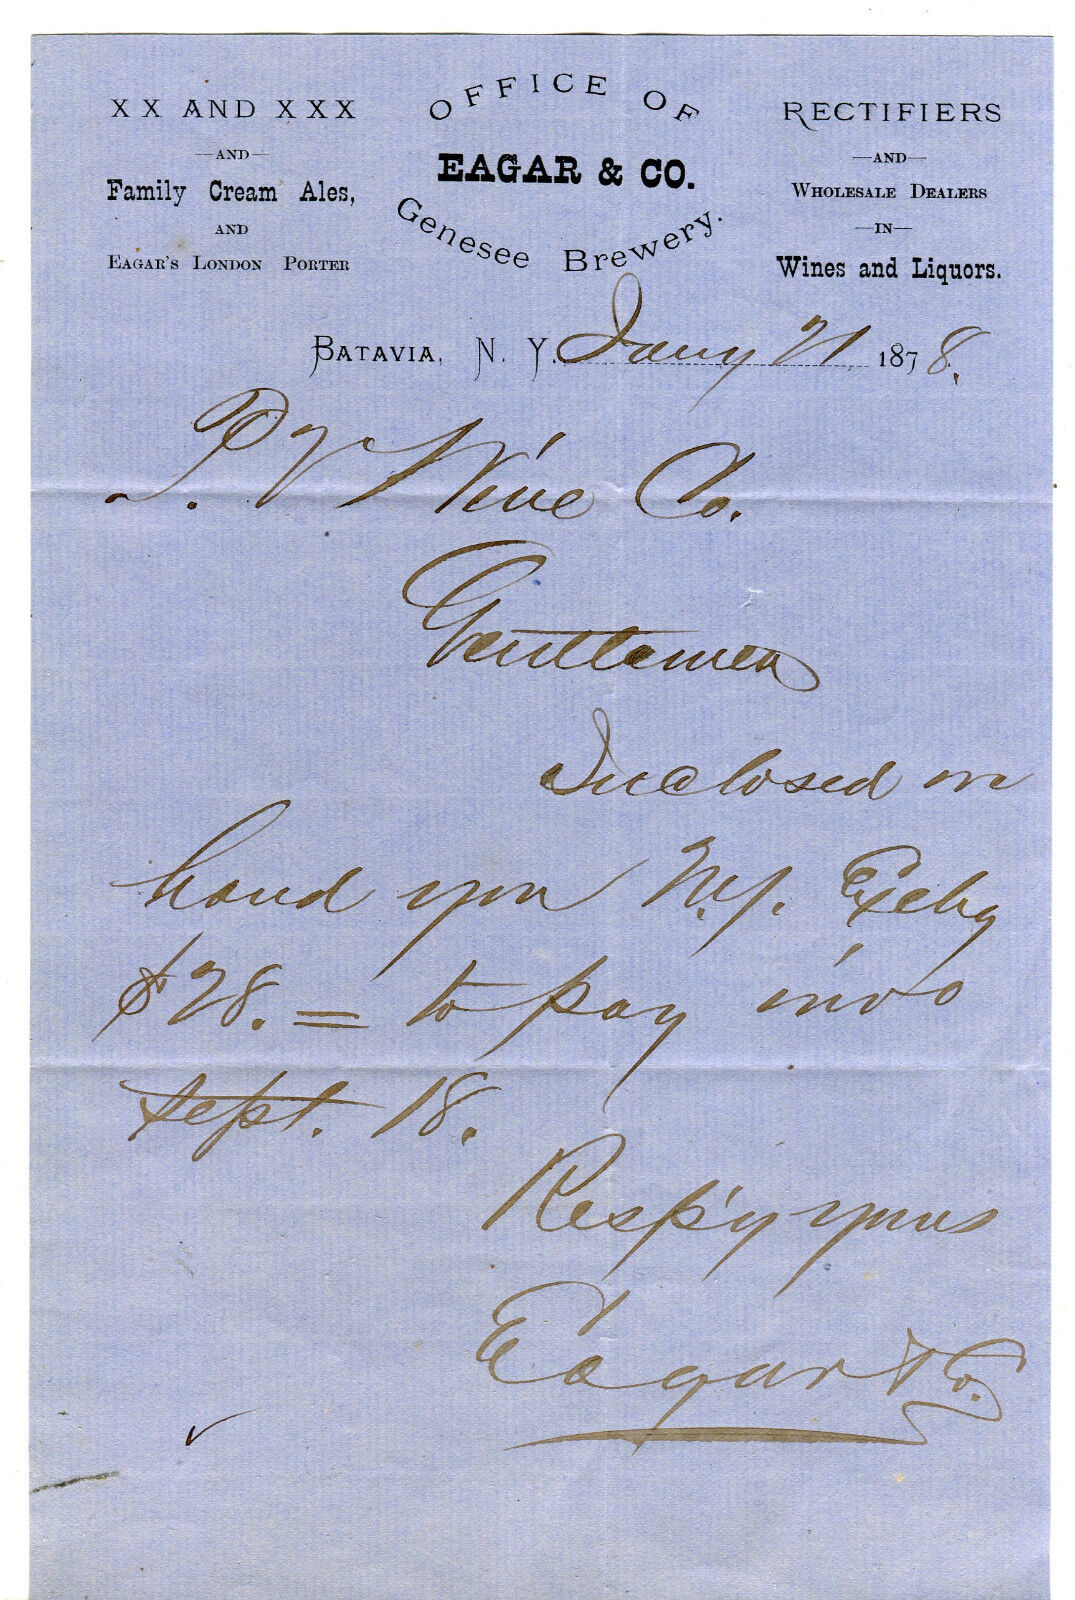 XX AND XXX
—AND—
Family Cream Ales,
AND
EAGAR'S LONDON PORTER
OFFICE OF
EAGAR & CO.
Genesee Brewery.
RECTIFIERS
—AND—
WHOLESALE DEALERS
—IN—
Wines and Liquors.
BATAVIA, N. Y. Jany 21 1878.
P. V Wine Co.
Gentlemen
Inclosed we
hand you N.Y. Exchg
$28.= to pay invo
Sept. 18.
Resp'y yours
Eagar & Co.